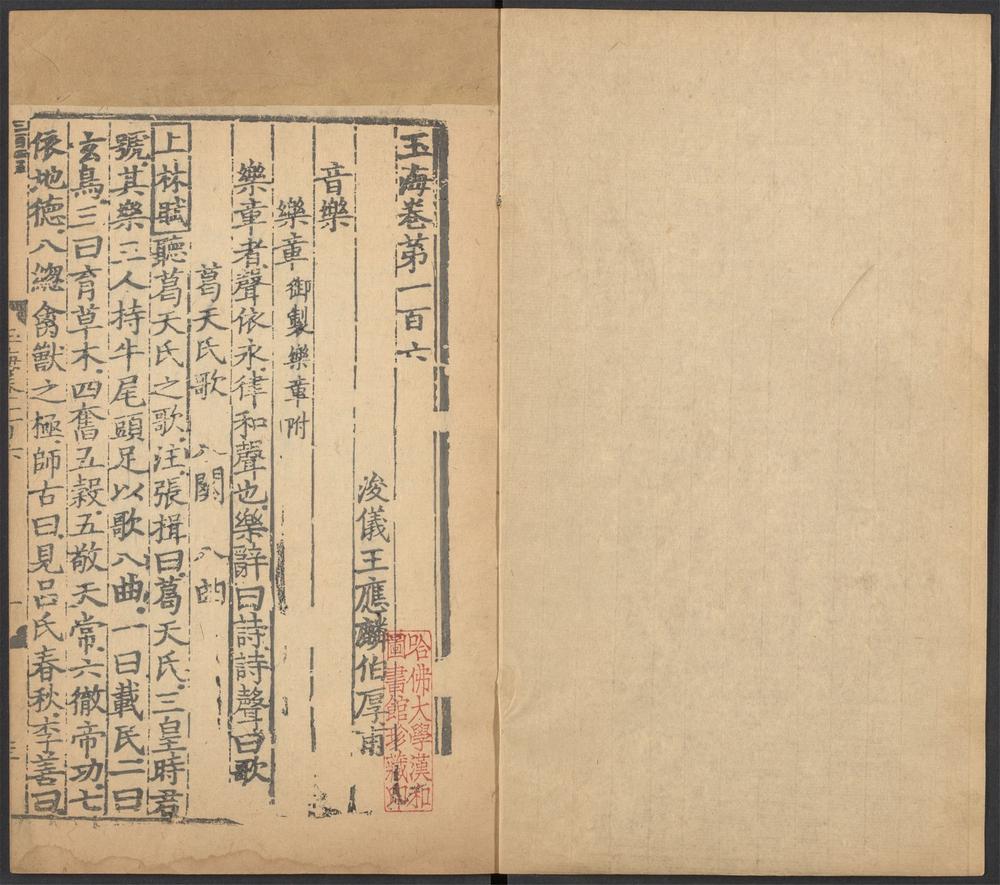 玉海卷第一百六
浚儀王應麟伯厚甫
音樂
樂章御製樂章附
樂章者聲依永律和聲也樂辭曰詩詩聲曰歌
葛天氏歌 八闋 八曲
上林賦聽葛天氏之歌注張揖曰葛天氏三皇時君
號其樂三人持牛尾頭足以歌八曲一曰載民二曰
玄鳥三曰育草木四奮五穀五敬天常六徹帝功七
依地德八緫禽獸之極師古曰見呂氏春秋李善曰
哈佛大學漢和
圖書館珍藏印